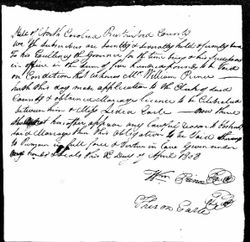 State of North Carolina Rutherford County
We the Subscribers are Justly & severally held & firmly bound
To his Excellency the Governor for the time being & his Successors
in office in the Sum of five hundred pounds to be Void
on Condition that Whereas Mr William Prince
hath this day made application to the Clerk of said
County & obtained a Marriage licence to be Celebrated
between him & Miss Lidia Earle Now
Should not hereafter appear any Lawful reason to
said Marriage then this Obligation to be Void
to remain in full force & Virtue in Law Given under
our hands & Seals this Day of April 1803
Wm Prince
Theron Earle